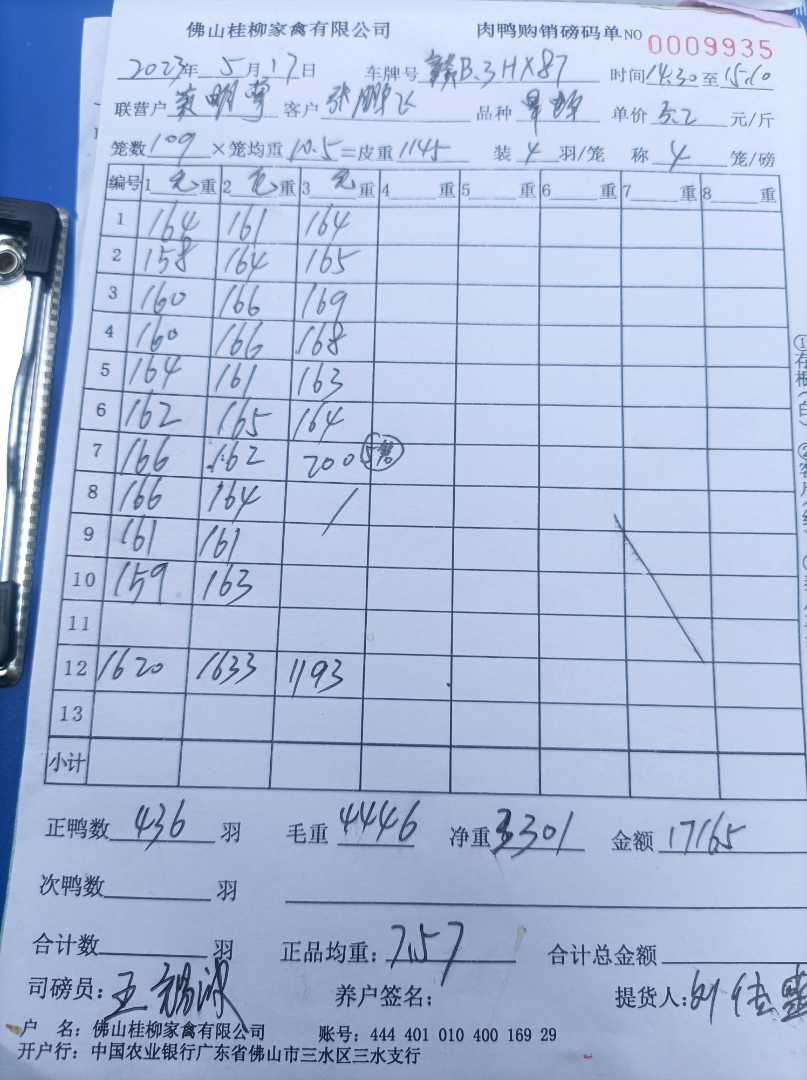 佛山桂柳家禽有限公司 肉鸭购销磅码单 NO 0009935
2023年 5月 17日 车牌号 赣B.3HX87 时间 14.30 至 15.10
联营户 客户 张鹏飞 品种 单价 5.2 元/斤
笼数 109 ×笼均重 10.5 =皮重 1145 装 4 羽/笼 称 4 笼/磅
编号 1 毛 重 2 毛 重 3 毛 重 4 重 5 重 6 重 7 重 8 重
1 164 161 164
2 158 164 165
3 160 166 169
4 160 166 168
5 164 161 163
6 162 165 164
7 166 162 200 5笼
8 166 164 /
9 161 161
10 159 163
11
12 1620 1633 1193
13
小计
正鸭数 436 羽 毛重 4446 净重 3301 金额 17165
次鸭数 羽
合计数 羽 正品均重: 7.57 合计总金额
司磅员: 王 养户签名: 提货人: 刘
户 名: 佛山桂柳家禽有限公司 账号: 444 401 010 400 169 29
开户行: 中国农业银行广东省佛山市三水区三水支行